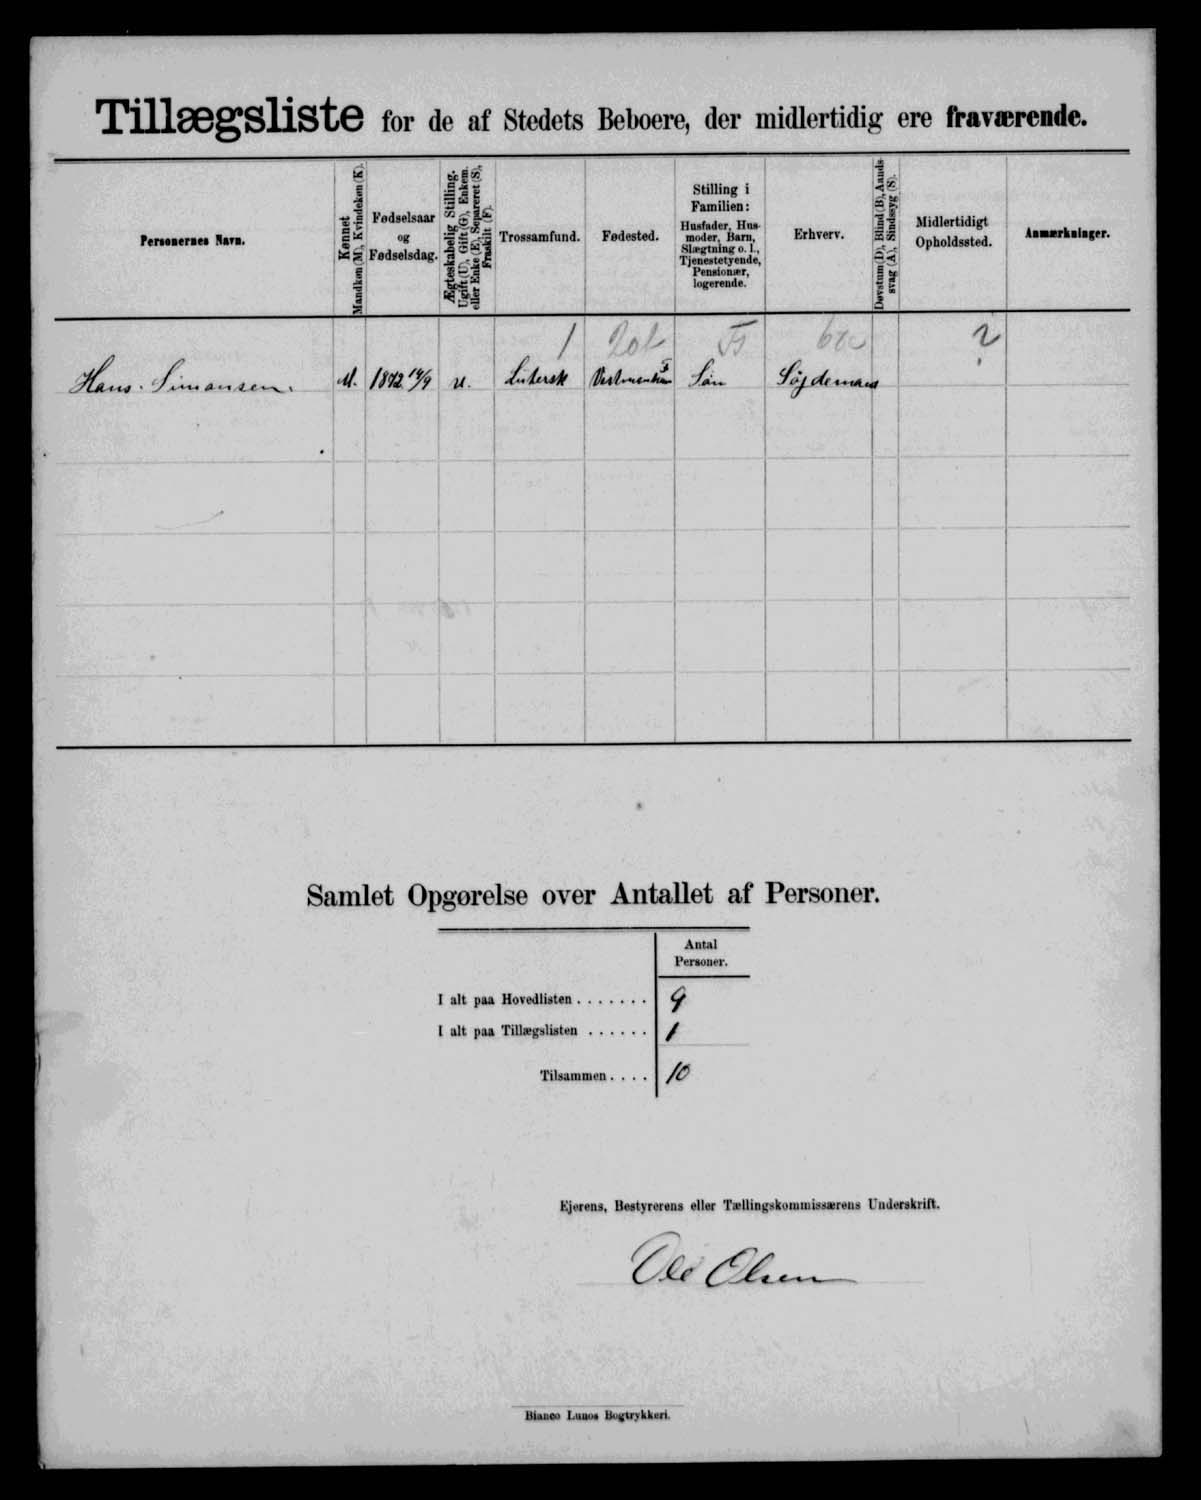 Tillægsliste for de af Stedets Beboere, der midlertidig ere fraværende.
Personernes Navn.
Kønnet
Mandkøn (M), Kvindekøn (K).
Fødselsaar
og
Fødselsdag.
Ægteskabelig Stilling.
Ugift (U), Gift (G), Enkem.
eller Enke (E), Separeret (S),
Fraskilt (F).
Trossamfund.
Fødested.
Stilling i
Familien:
Husfader, Hus-
moder, Barn,
Slægtning o. l.,
Tjenestetyende,
Pensionær,
logerende.
Erhverv.
Døvstum (D), Blind (B), Aands-
svag (A), Sindssyg (S).
Midlertidigt
Opholdssted.
Anmærkninger.
1 ?
Hans Simonsen. M. 1872 14/9 U. Lutersk Søn Söjdemand
Samlet Opgørelse over Antallet af Personer.
Antal
Personer.
I alt paa Hovedlisten . . . . . . . 9
I alt paa Tillægslisten . . . . . . 1
Tilsammen . . . . 10
Ejerens, Bestyrerens eller Tællingskommissærens Underskrift.
Ole Olsen
Bianco Lunos Bogtrykkeri.